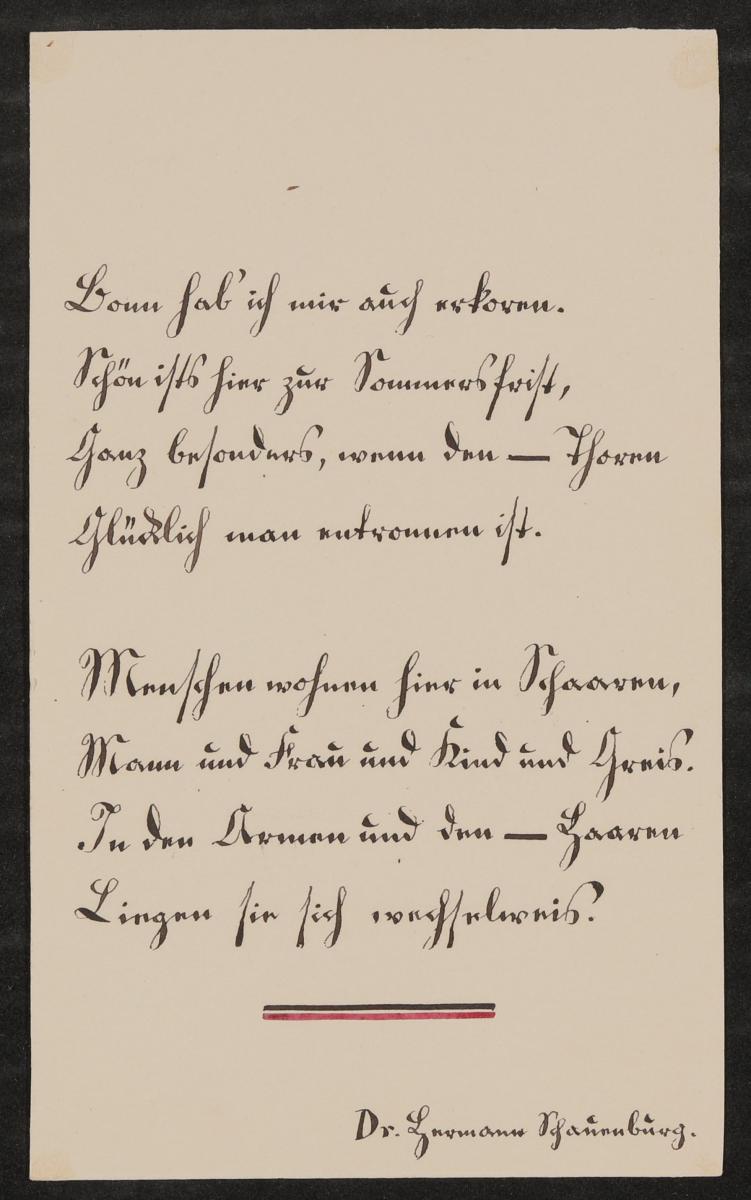 Bonn hab' ich mir auch erkoren.
Schön ists hier zur Sommersfrist,
Ganz besonders, wenn den — Thoren
Glücklich man entronnen ist.
Menschen wohnen hier in Schaaren,
Mann und Frau und Kind und Greis.
In den Armen und den — Haaren
Liegen sie sich wechselweis.
Dr. Hermann Schauenburg.